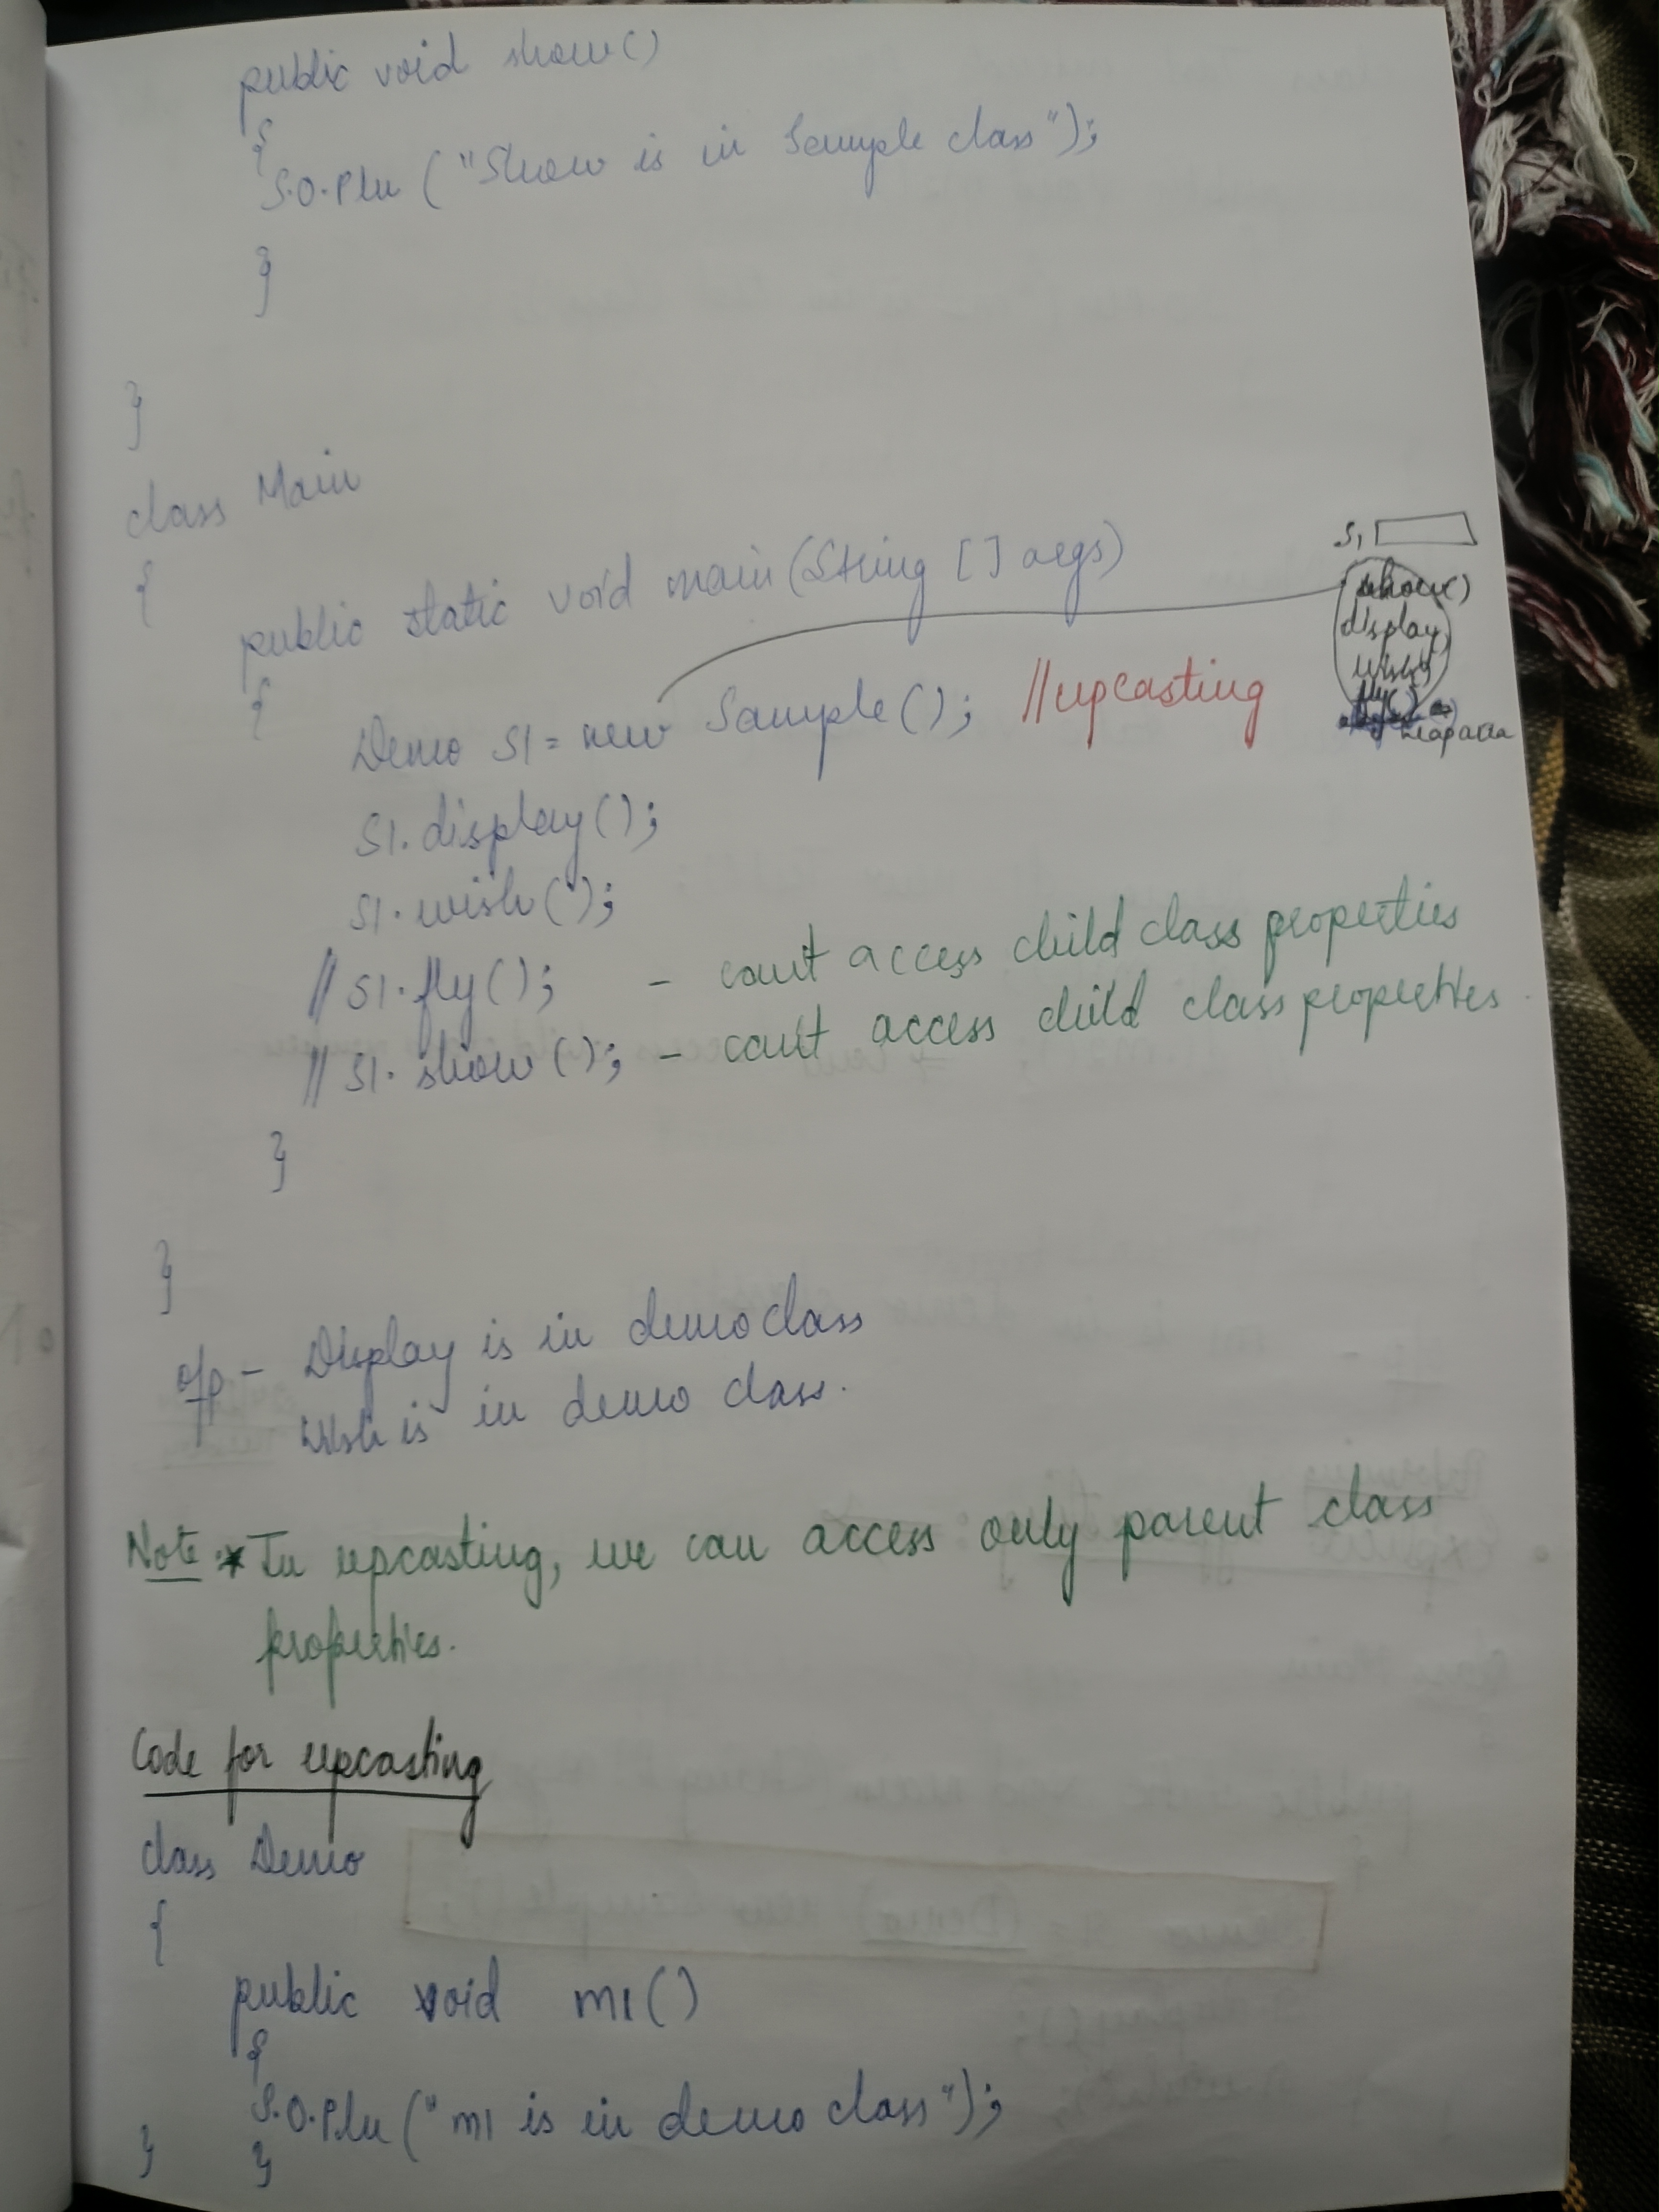 public void show()
{
S.O.Pln ("Show is in Sample class");
}
}
class Main
{
public static void main (String [] args)
{
S1
show()
display
wish
fly()
heap area
Demo S1 = new Sample(); //upcasting
S1.display();
S1.wish();
// S1.fly(); - cant access child class properties
// S1.show(); - cant access child class properties
}
}
o/p - Display is in demo class
Wish is in demo class.
Note :* In upcasting, we can access only parent class
properties.
Code for upcasting
class Demo
{
public void m1()
{
S.O.Pln ("m1 is in demo class");
} }